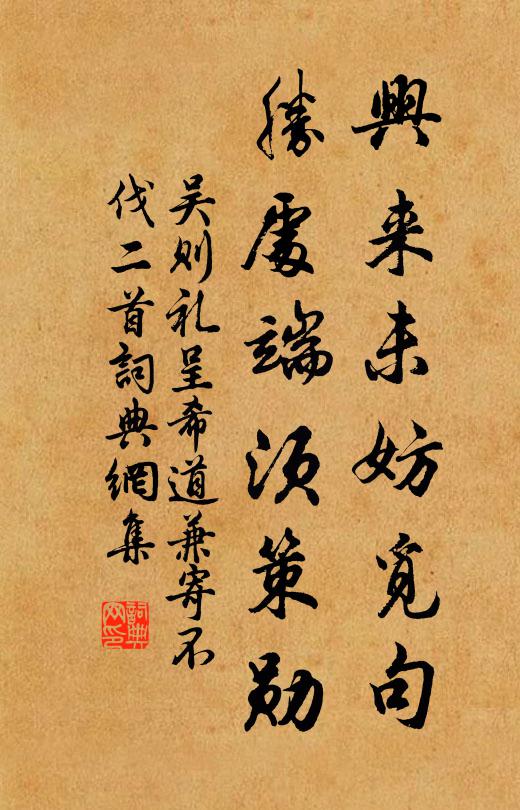 興来未妨覓句
勝處端須策勋
吴则礼呈希道兼寄不
伐二首詞典網集
詞典
网印